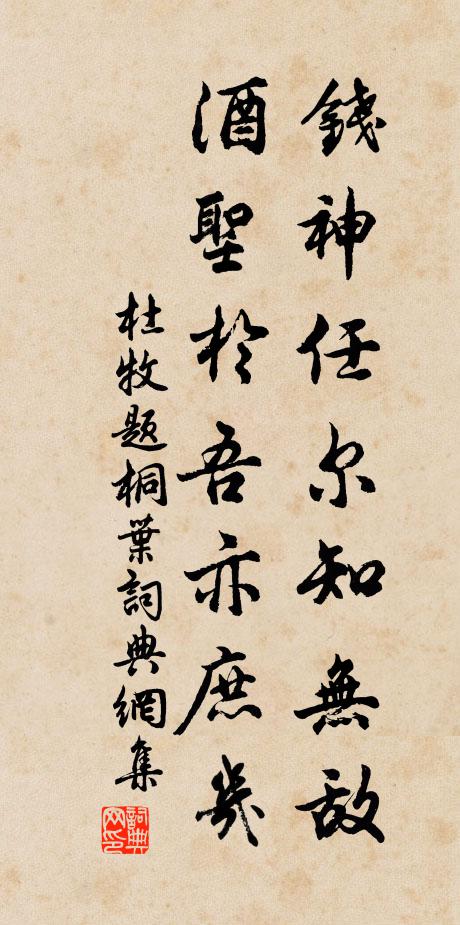 錢神任尔知無敵
酒聖於吾亦庶幾
杜牧题桐葉詞典網集
詞典网印